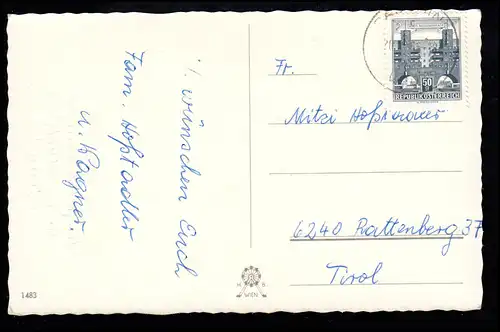 1/ wünschen Euch
Fam. Hoßtadler
u. Wagner.
Fr.
Mitzi
6240 Rattenberg 37
Tirol
50
REPUBLIK ÖSTERREICH
H B
WIEN
1483